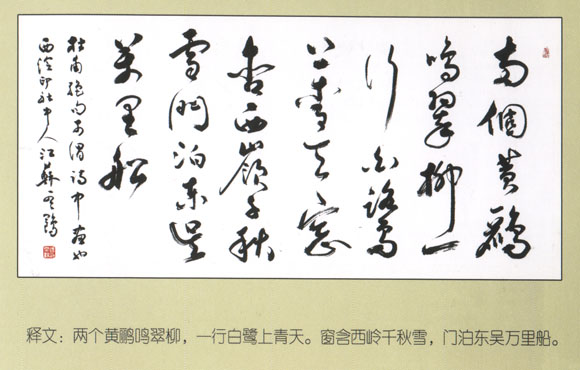 两個黄鸝
鳴翠柳一
行白鷺
上青天窓
含西嶺千秋
雪門泊东吴
萬里船
杜甫绝句可谓诗中画也
西泠印社中人江蘇
释文：两个黄鹏鸣翠柳，一行白鹭上青天。窗含西岭千秋雪，门泊东吴万里船。